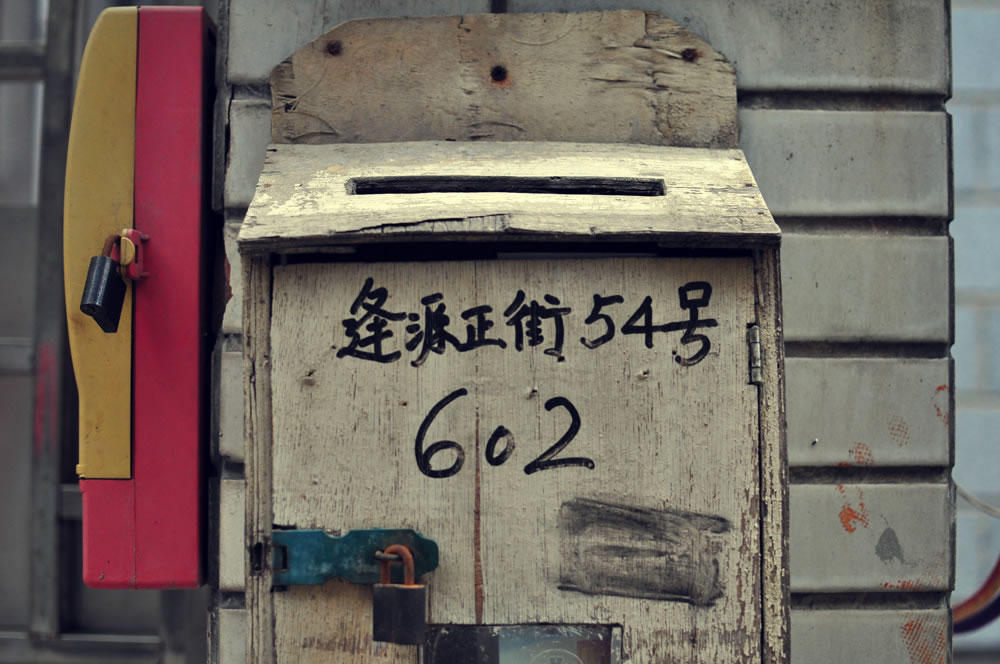 逢源正街54号
602